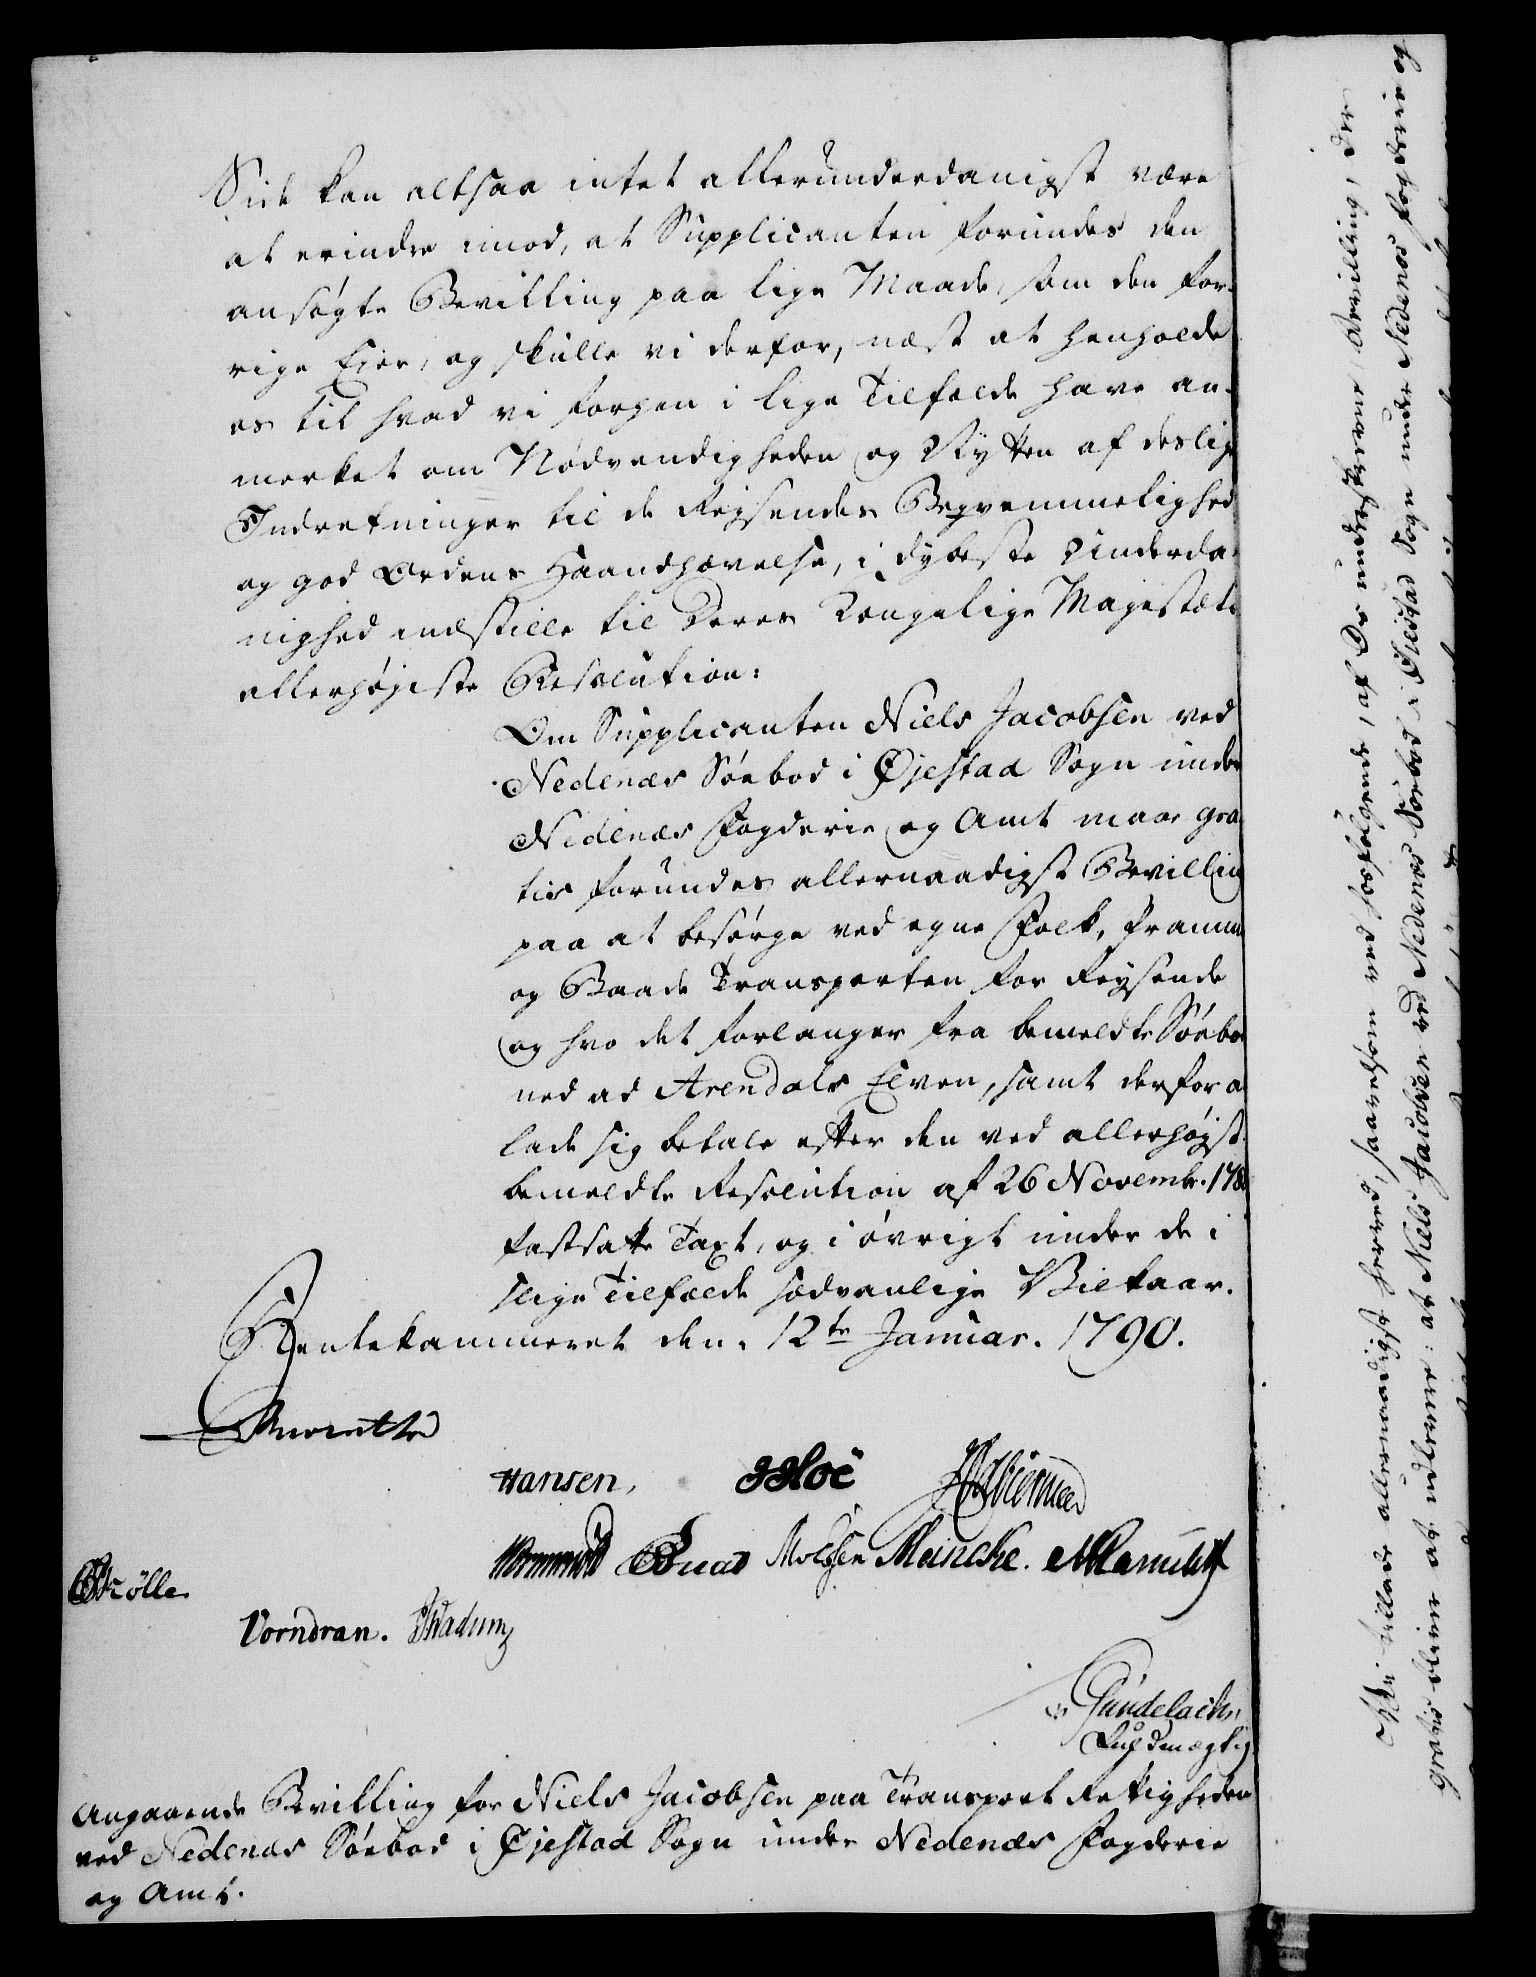 Side kan altsaa intet allerunderdanigst være
at erindre imod, at Supplicanten forundes den
ansøgte Bevilling paa lige Maade, som den for-
rige Eier, og skulle vi derfor, næst at henholde
os til hvad vi forhen i lige Tilfælde have an-
merket om Nødvendigheden og Nytten af deslige
Indretninger til de Reysendes Beqvemmelighed
og god Ordens Haandhævelse, i dybeste Underda-
nighed indstille til Deres Kongelige Majestæts
allerhøjeste Resolution:
Om Supplicanten Niels Jacobsen ved
Nedenæs Söebod i Øjestad Sogn under
Nedenæs Fogderie og Amt maae gra-
tis forundes allernaadigst Bevilling
paa at besørge ved egne Folk, Pramme
og Baade Transporten for Reysende
og hvo det forlanger fra bemeldte Söebod
ned ad Arendals Elven, samt derfor a
lade sig betale efter den ved allerhøjst-
bemeldte Resolution af 26 Novembr. 178
fastsatte Taxt, og i øvrigt under de i
slige Tilfælde sædvanlige Vilkaar.
Rentekammeret den 12te Januar. 1790.
Hansen, Hoë
Wormskiold Meincke.
Krölle
Vorndran. Wadum
Gundelach,
Fuldmægtig
Angaaende Bevilling for Niels Jacobsen paa Transport Rettigheden
ved Nedenæs Söebod i Øjestad Sogn under Nedenæs Fogderie
og Amt.
Vi tillade allernaadigst herved, saavelsom ved hosfølgende, af Os underskrevne, Bevilling, der
gratis bliver at udlevere: at Niels Jacobsen ved Nedenæs Söebod i Øiestad Sogn under Nedenæs Fogderie og